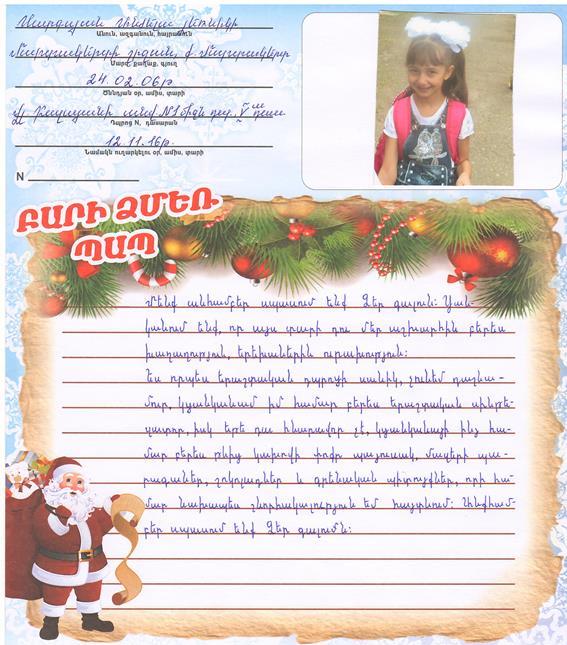 Սարգսյան Անժելա
Անուն, ազգանուն, հայրանուն
Մարզ, քաղաք, գյուղ
24.02.06թ.
Ծննդյան օր, ամիս, տարի
N1 հիմն. դպր., V դաս
Դպրոց N, դասարան
12.11.16թ.
Նամակն ուղարկելու օր, ամիս, տարի
N
ԲԱՐԻ ՁՄԵՌ
ՊԱՊ
Մենք անհամբեր սպասում ենք Ձեր գալուն: Ցան-
կանում ենք, որ այս տարի դու մեր աշխարհին բերես
խաղաղություն, երեխաներին ուրախություն:
Ես որպես երաժշտական դպրոցի սանիկ, չունեմ դաշնա-
մուր, կցանկանամ իմ համար բերես երաժշտական սինթե-
զատոր, իսկ եթե դա հնարավոր չէ, կցանկանայի ինձ հա-
մար բերես թևից կախովի փոքր պայուսակ, մազերի պա-
րագաներ, շոկոլադներ և գրենական պիտույքներ, որի հա-
մար նախապես շնորհակալություն եմ հայտնում: Անհամ-
բեր սպասում ենք Ձեր գալուն: